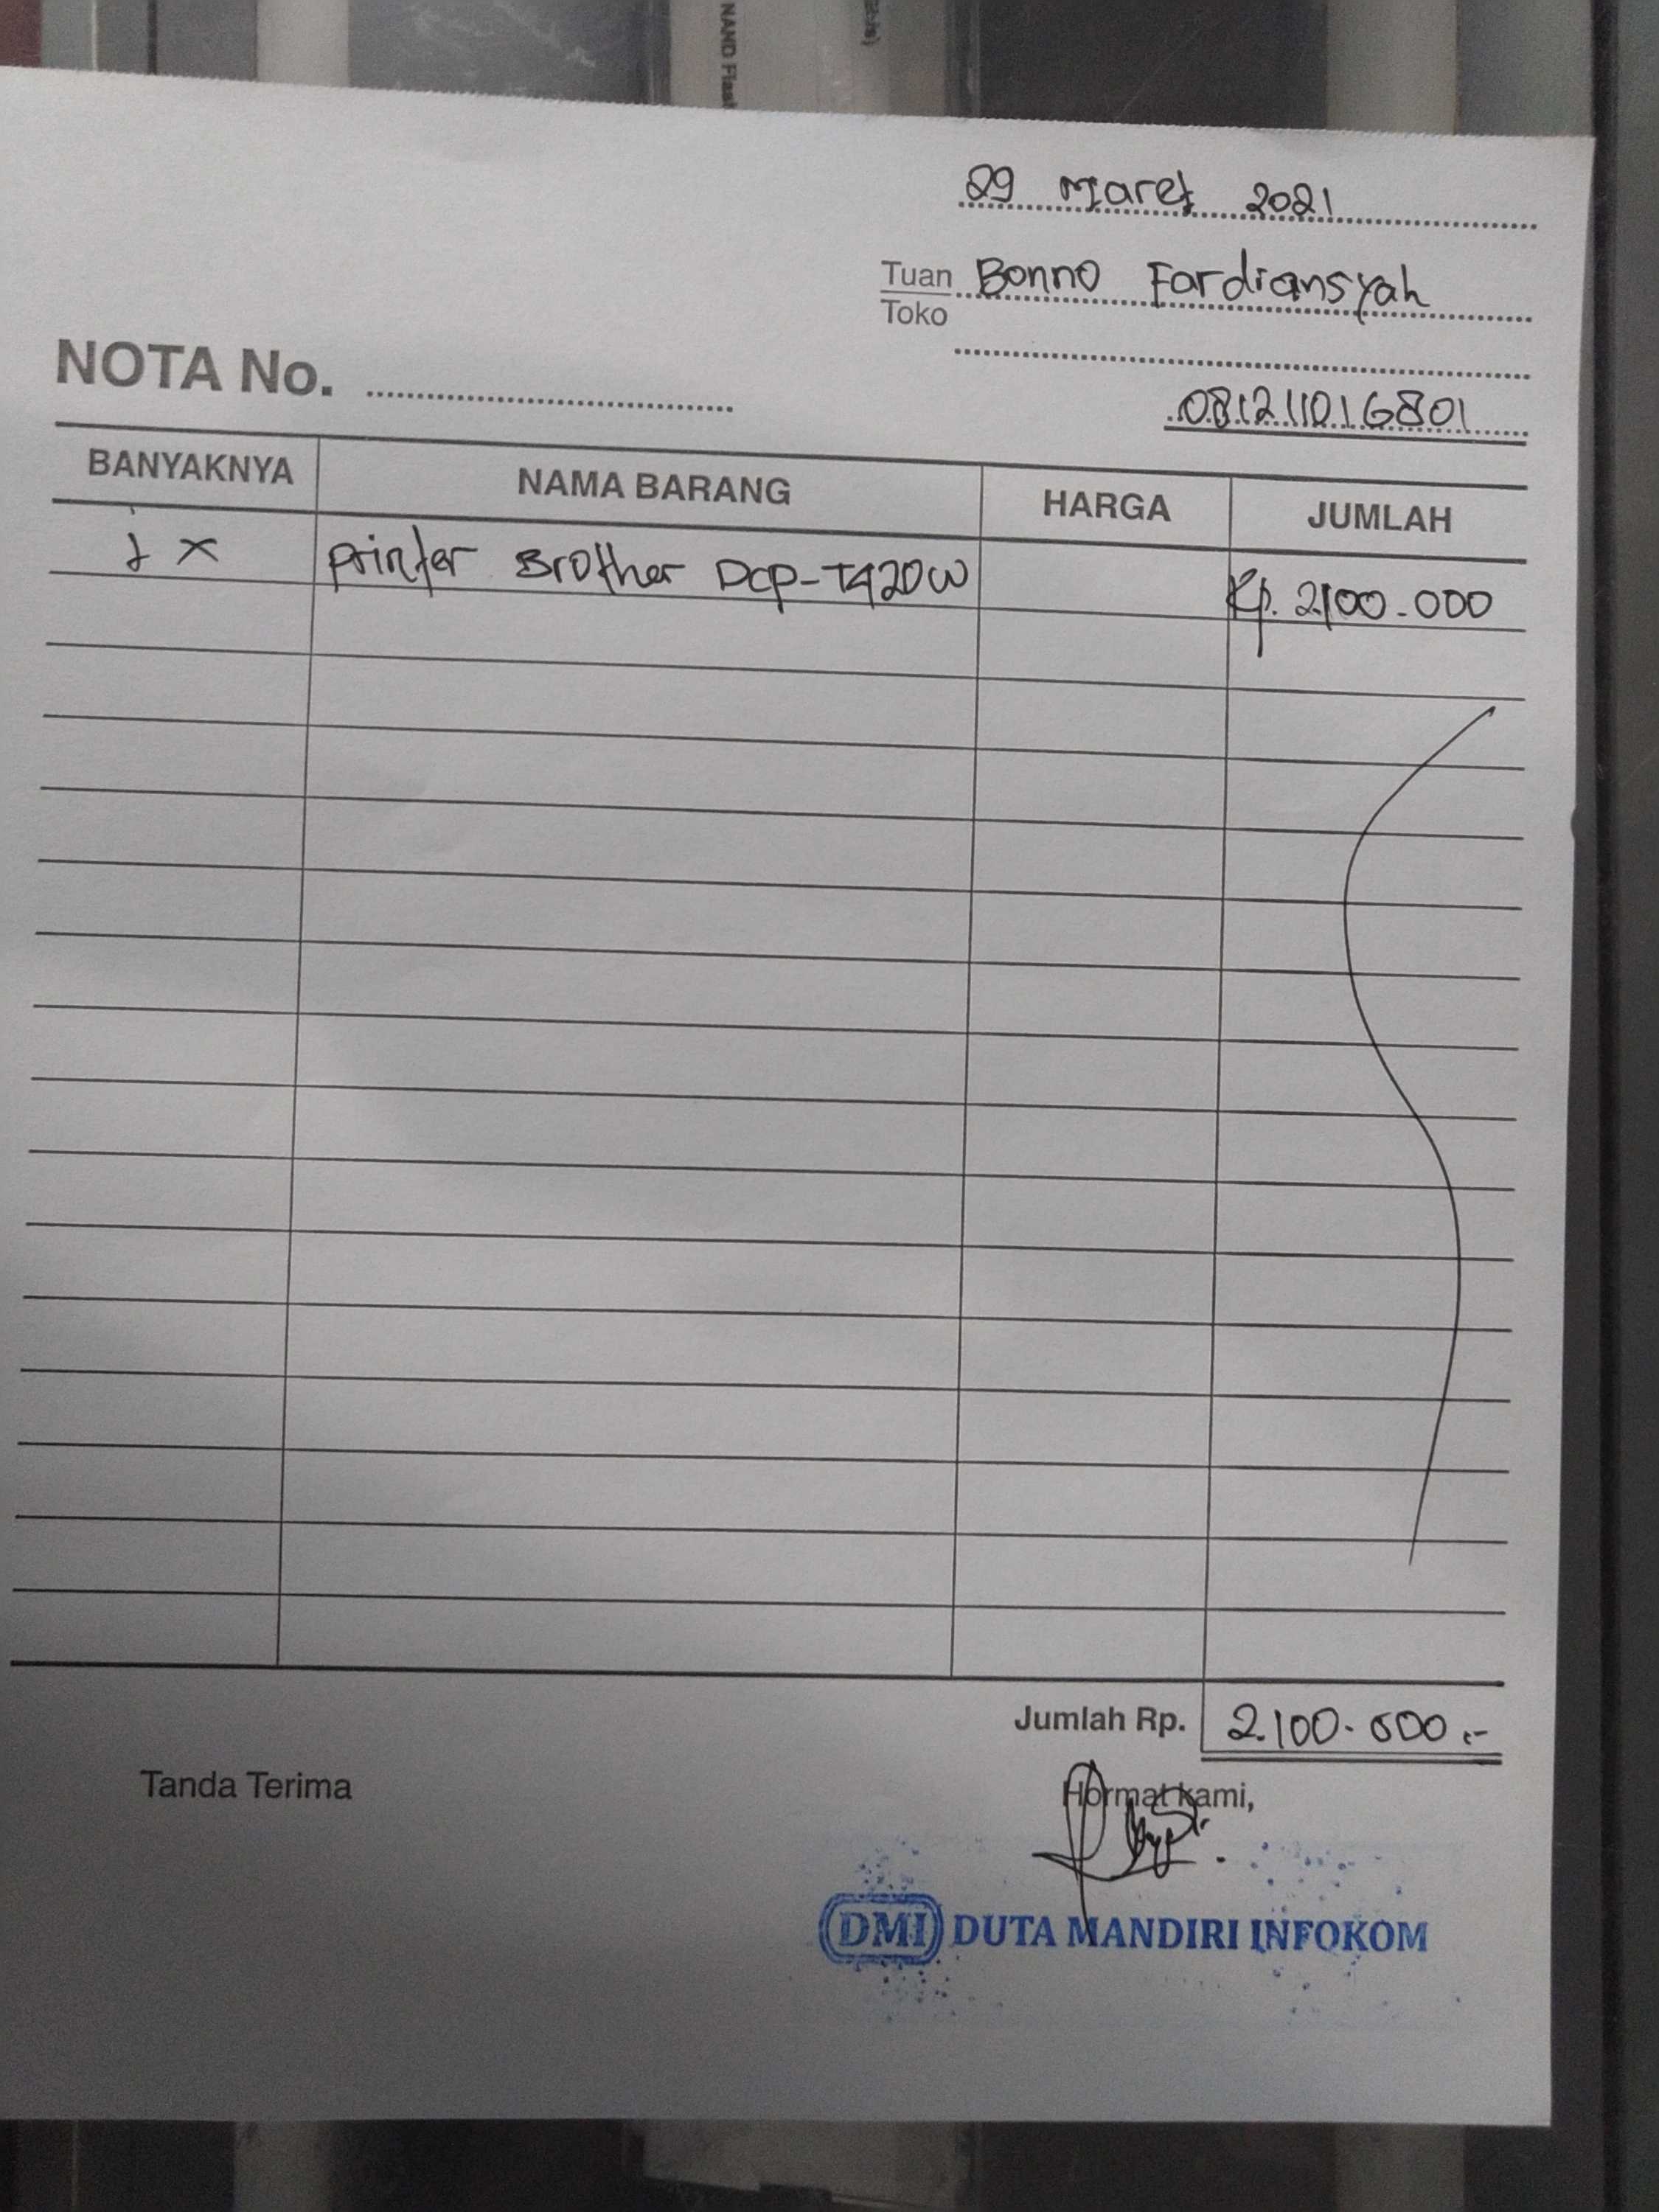 NAND Flas
29 Maret 2021
Tuan Bonno Fardiansyah
Toko
NOTA No.
081211016801
BANYAKNYA NAMA BARANG HARGA JUMLAH
1 x Printer Brother Dcp-T420W Rp. 2.100.000
Jumlah Rp. 2.100.000,-
Tanda Terima Hormat kami,
DMI DUTA MANDIRI INFOKOM